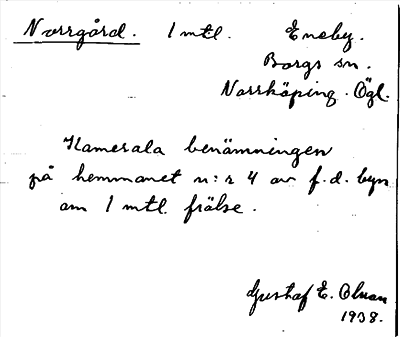 Norrgård. 1 mtl. Eneby.
Borgs sn.
Norrköping. Ögl.
Kamerala benämningen
på hemmanet n:r 4 av f.d. byn
om 1 mtl frälse.
Gustaf E. Olsson
1938.